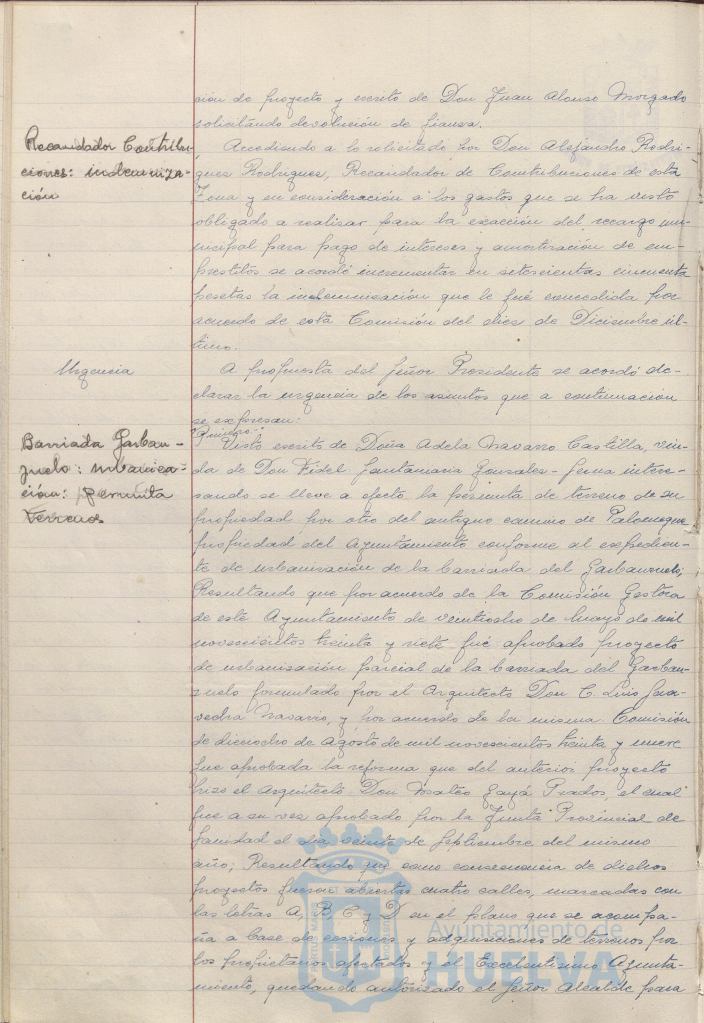 ción de proyecto y escrito de Don Juan Alonso Morgado
solicitando devolución de fianza.
Recaudador Contribu-
ciones: indemniza-
ción
Accediendo a lo solicitado por Don Alejandro Rodri-
gues Rodrigues, Recaudador de Contribuciones de esta
Zona y en consideración a los gastos que se ha visto
obligado a realizar para la exacción del recargo mu-
nicipal para pago de intereses y amortización de em-
prestitos se acordó incrementar en setecientas cincuenta
pesetas la indemnización que le fué concedida por
acuerdo de esta Comisión del dies de Diciembre úl-
timo.
Urgencia
A propuesta del Señor Presidente se acordó de-
clarar la urgencia de los asuntos que a continuación
se expresan:
Barriada Garban-
zuelo: urbaniza-
ción: permuta
terrenos
Primero:
Visto escrito de Doña Adela Navarro Castilla, viu-
da de Don Fidel Santamaria Gonzales-Serna intere-
sando se lleve a efecto la permuta de terreno de su
propiedad por otro del antiguo camino de Palomeque
propiedad del Ayuntamiento conforme al expedien-
te de urbanización de la barriada del Garbanzuelo;
Resultando que por acuerdo de la Comisión Gestora
de este Ayuntamiento de veintiocho de Mayo de mil
novescientos treinta y siete fué aprobado proyecto
de urbanización parcial de la barriada del Garban-
zuelo formulado por el Arquitecto Don C. Luis Saa-
vedra Navarro, y por acuerdo de la misma Comisión
de dieciocho de Agosto de mil novescientos treinta y nueve
fue aprobada la reforma que del anterior proyecto
hizo el Arquitecto Don Mateo Gayá Prados, el cual
fue a su vez aprobado por la Junta Provincial de
Sanidad el dia veinte de Septiembre del mismo
año; Resultando que como consecuencia de dichos
proyectos fueron abiertas cuatro calles, marcadas con
las letras A, B, C y D en el plano que se acompa-
ña a base de cesiones y adquisiciones de terrenos por
los propietarios afectados y el Excelentisimo Ayunta-
miento, quedando autorizado el Señor Alcalde para
Ayuntamiento de
HUELVA